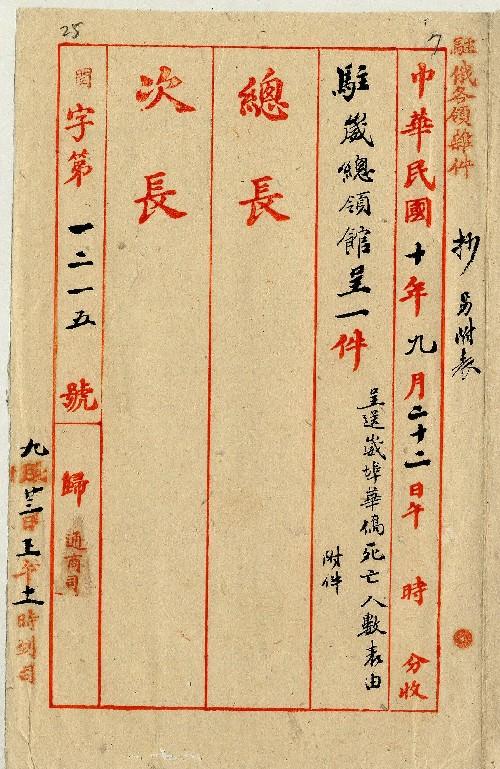 7
25
駐俄各領雜件
抄 另附表
中華民國十年九月二十二日午 時 分收
駐崴總領館呈一件
呈送崴埠華僑死亡人數表由
附件
總長
次長
字第一二一五號
歸通商司
九月廿三日 午十一時到司